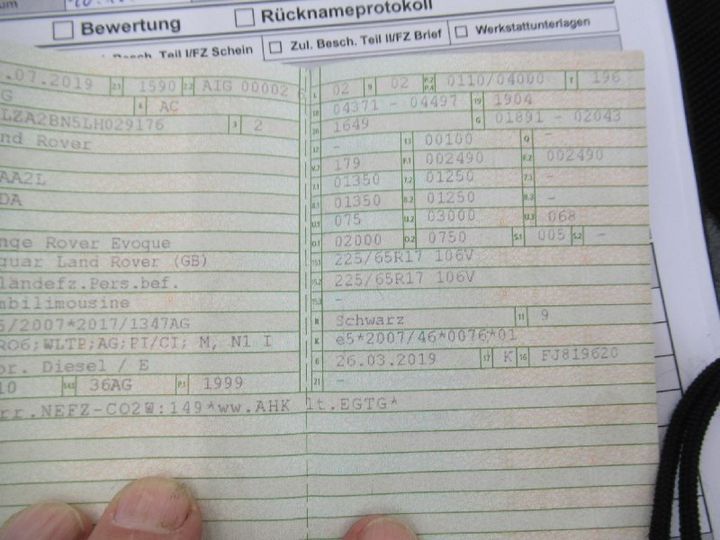 Bewertung Rücknameprotokoll
Besch. Teil I/FZ Schein Zul. Besch. Teil II/FZ Brief Werkstattunterlagen
.07.2019 2.1 1590 2.2 AIG 00002 6
G 4 AC
LZA2BN5LH029176 3 2
nd Rover
AA2L
DA
nge Rover Evoque
guar Land Rover (GB)
ländefz.Pers.bef.
mbilimousine
5/2007*2017/1347AG
RO6;WLTP;AG;PI/CI; M, N1 I
or. Diesel / E
10 36AG P.1 1999
rr.NEFZ-CO2@:149*ww.AHK lt.EGTG*
L 02 9 02 P.2 P.4 0110/04000 T 196
18 04371 - 04497 19 1904
20 1649 G 01891 - 02043
12 - 13 00100 Q -
V.7 179 F.1 002490 F.2 002490
7.1 01350 7.2 01250 7.3 -
8.1 01350 8.2 01250 8.3 -
U.1 075 U.2 03000 U.3 068
O.1 02000 O.2 0750 S.1 005 S.2 -
15.1 225/65R17 106V
15.2 225/65R17 106V
15.3 -
R Schwarz 11 9
K e5*2007/46*0076*01
6 26.03.2019 17 K 16 FJ819620
21 -